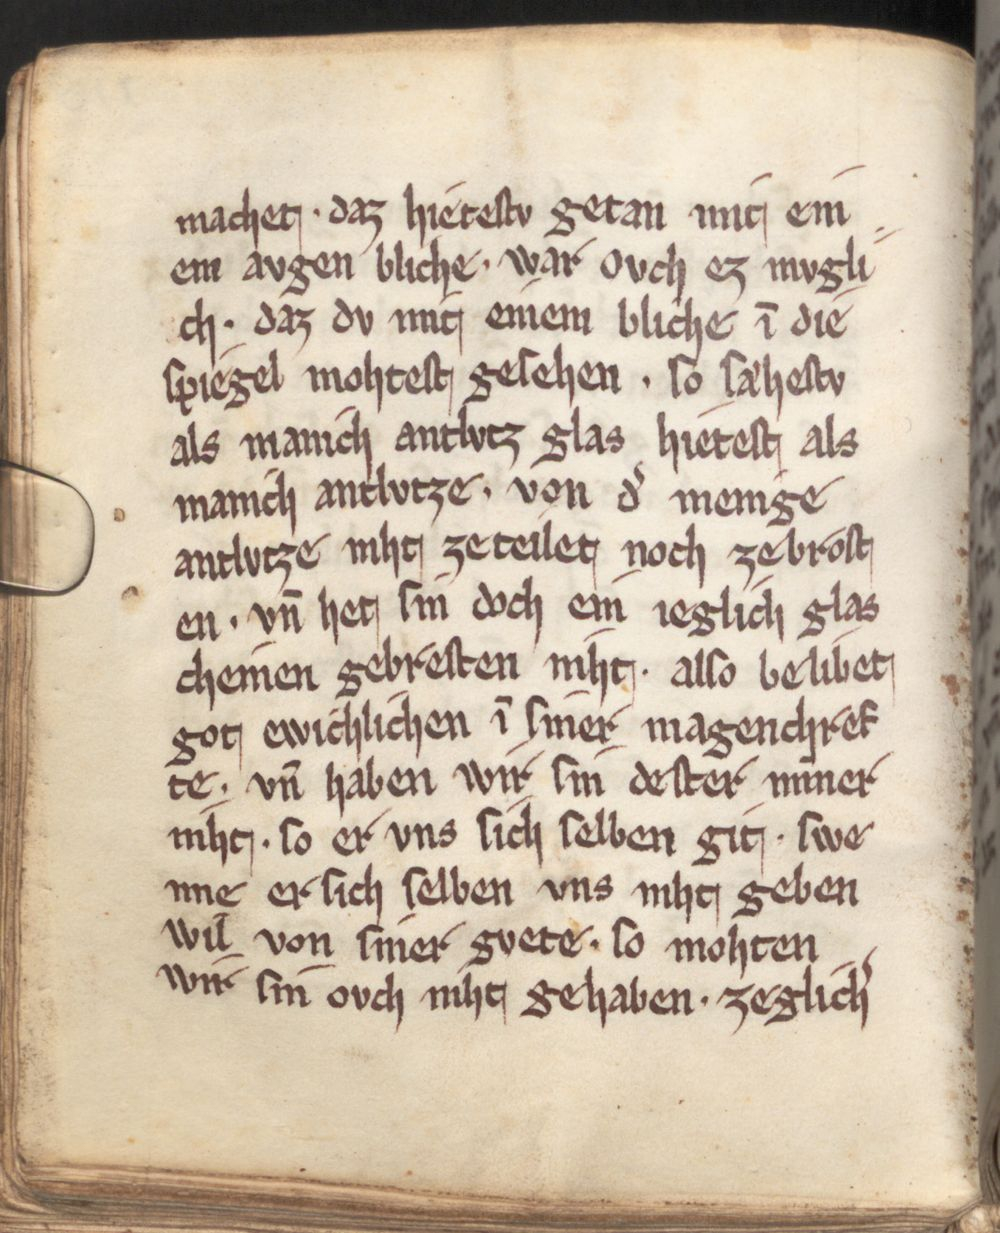 machet · daz hietestv getan mit eini
em avgen bliche · war ovch ez mvgli
ch · daz dv mit einem bliche ī die
spiegel mohtest gesehen · so sæhestv
als manich antlvtz glas hietest als
manich antlvtze · von d͛ menige
antlvtze niht zeteilet noch zebrost
en · vn̄ het sin doch ein ieglich glas
cheinen gebresten niht · also belibet
got ewichlichen ī siner magenchref
te · vn̄ haben wir sin dester minner
niht · so er vns sich selben git · swe
nne er sich selben vns niht geben
wil von siner gvete · so mohten
wir sin ovch niht gehaben · zeglich͛